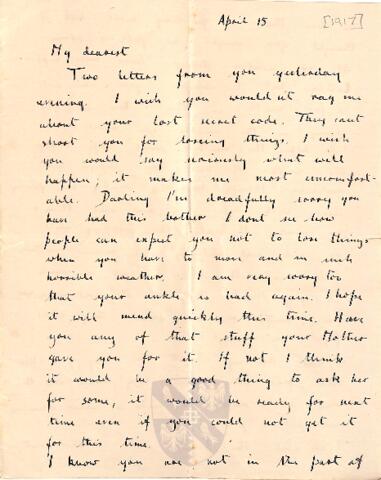 April 15 [1917]
My dearest
Two letters from you yesterday
evening. I wish you wouldn't rag me
about your lost secret code. They can't
shoot you for losing things. I wish
you would say seriously what will
happen; it makes me most uncomfort-
able. Darling I'm dreadfully sorry you
have had this bother I dont see how
people can expect you not to lose things
when you have to move and in such
horrible weather. I am very sorry too
that your ankle is bad again. I hope
it will mend quickly this time. Have
you any of that stuff your Mother
gave you for it. If not I think
it would be a good thing to ask her
for some, it would be ready for next
time even if you could not get it
for this time.
I know you are not in the part of